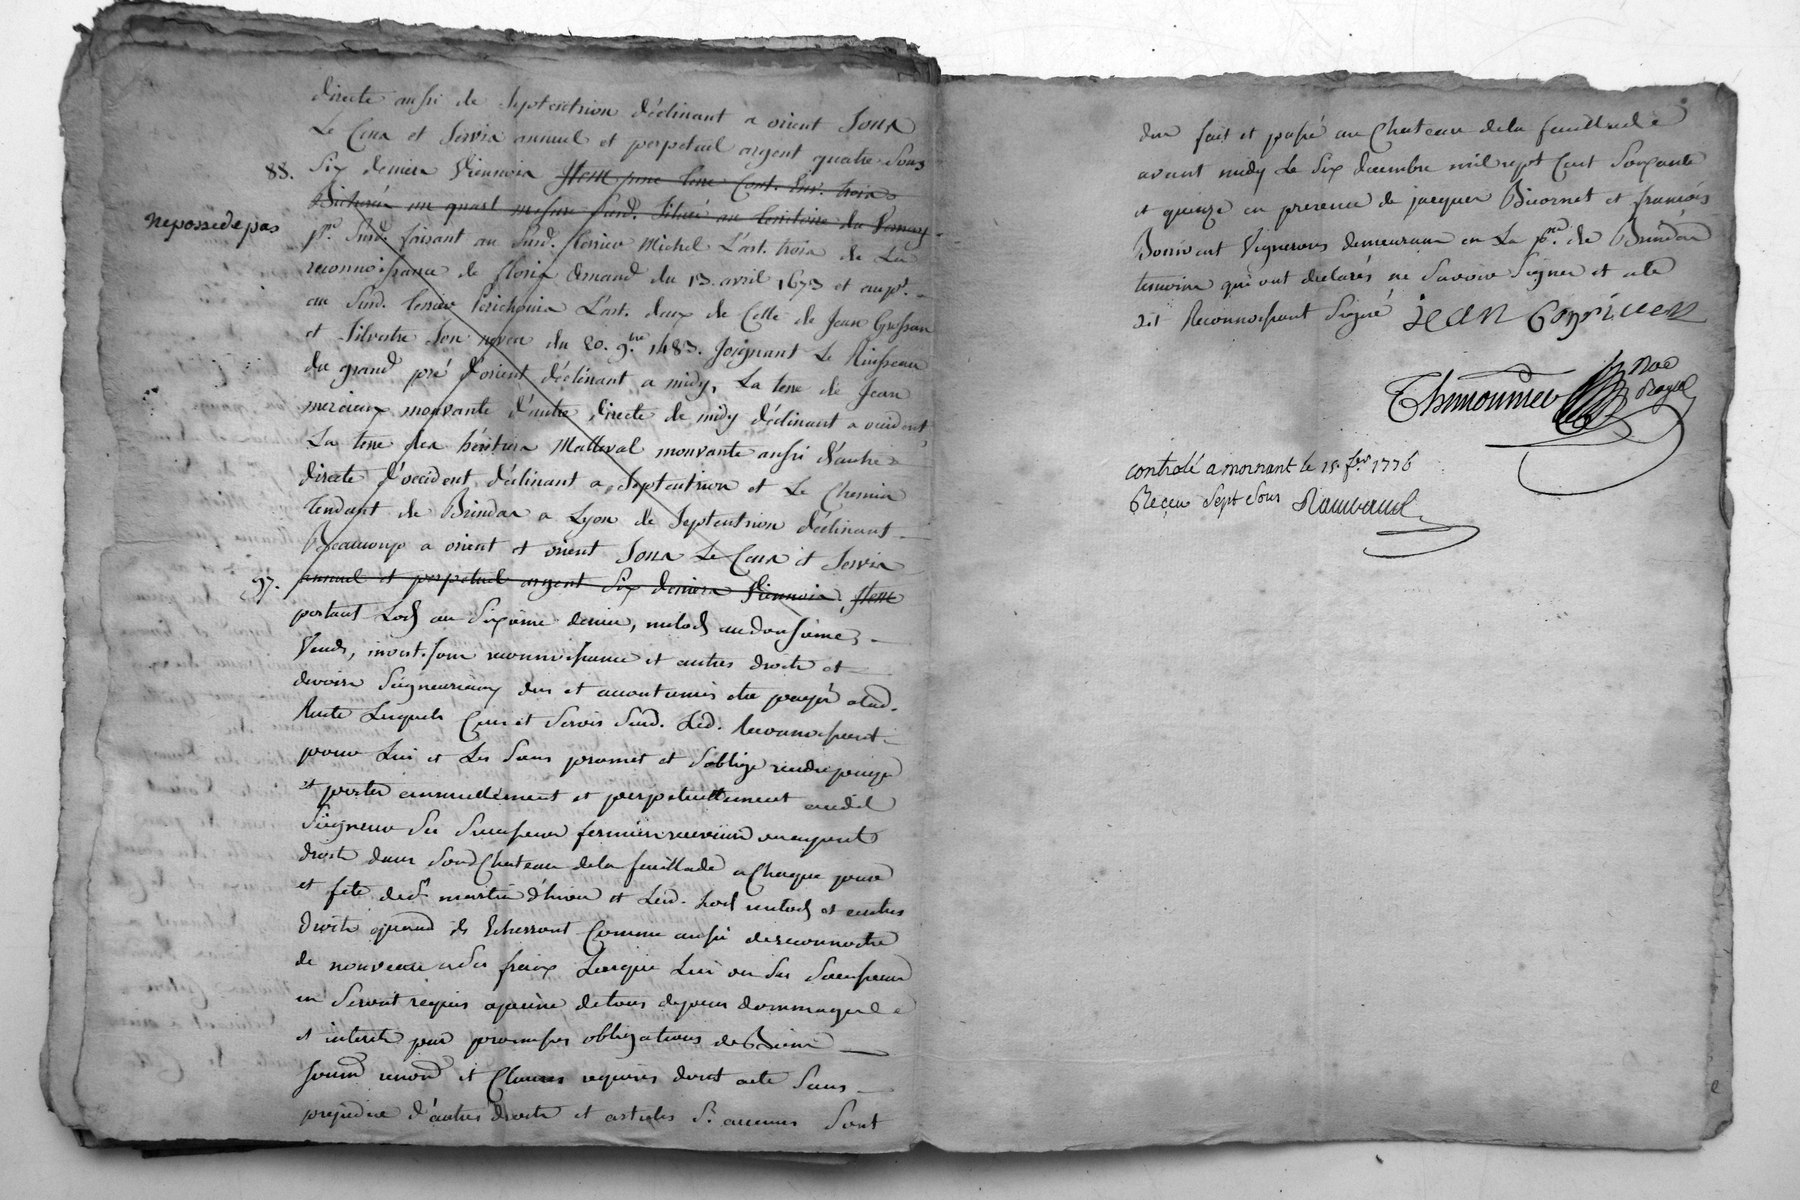 directe aussi de Septentrion déclinant a orient Sous
Le Cens et Servis annuel et perpetuel argent quatre Sous
88. Six deniers Viennois Item une terre Cont. Env. trois
Bicherées un quart mesure Susd. Située au territoire du
ne possede pas
pr. Susd. faisant au Susd. terrier Michel L'art. trois de La
reconnoissance de du 13. avril 1673 et
au Susd. terrier L'art. deux de Celle de Jean
et Silvestre Son du 20. 9.bre 1483. Joignant Le Ruisseau
du grand pré d'orient déclinant a midy, La terre de Jean
mercieux mouvante d'autre directe de midy déclinant a occident,
La terre des héritiers Matteval mouvante aussi d'autre
directe d'occident, déclinant a Septentrion et Le Chemin
tendant de Brindas a Lyon de Septentrion déclinant
Beaucoup a orient et orient Sous Le Cens et Servis
97. annuel et perpetuel argent Six deniers Viennois. Item
portant Lods au Sixième denier, milods au douzième,
Vends, invest. sous reconnoissance et autres droits et
devoirs Seigneuriaux dus et accoutumés etre payés alad.
Rente Lesquels Cens et Servis Susd. Led. Reconnoissant
pour Lui et Les Siens promet et S'oblige rendre payer
et porter annuellement et perpetuellement audit
Seigneur Ses Successeurs fermiers receveurs ou ayant
droits dans Sond Chateau de la feuillade a Chaque jour
et fete de St. martin d'hiver et Lesd. Lods milods et autres
droits quand ils Echerront Comme aussi de reconnoitre
de nouveau a Ses fraix Lorsque Lui ou Ses Successeurs
en Seront requis a peine de tous depens dommages
et interets par promesses obligations de Biens
Soum renon et Clauses requises dont acte Sans
prejudice d'autres droits et articles S. aucuns Sont
dus fait et passé au Chateau de la feuillade
avant midy Le Six decembre mil sept Cent Soixante
et quinze en presence de jacques Bicornet et francois
Bonnivent Vignerons demeurans en La pse. de Brindas
temoins qui ont declarés ne Savoir Signer et a le
dit Reconnoissant Signé jean
Thimonnier Not Royal
controlé a mornant le 15. fer 1776
Reçeu Sept Sous Rambaud